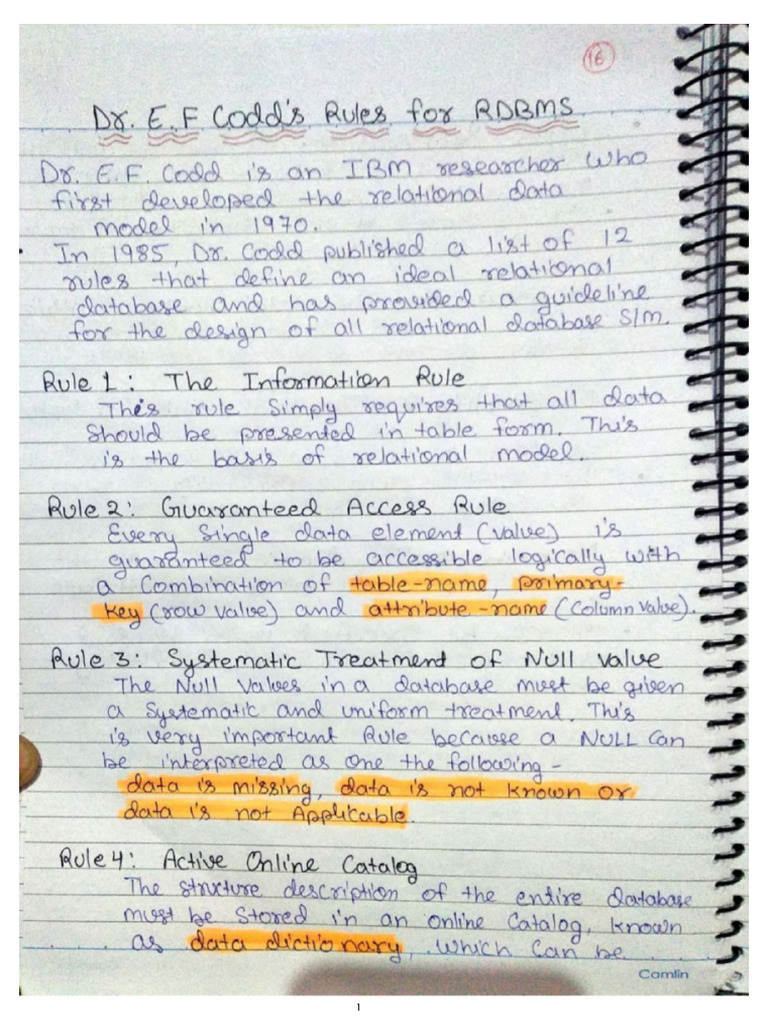 16
Dr. E.F Codd's Rules for RDBMS
Dr. E.F. Codd is an IBM researcher who
first developed the relational data
model in 1970.
In 1985, Dr. Codd published a list of 12
rules that define an ideal relational
database and has provided a guideline
for the design of all relational database S/m.
Rule 1: The Information Rule
This rule simply requires that all data
should be presented in table form. This
is the basis of relational model.
Rule 2: Guaranteed Access Rule
Every single data element (value) is
guaranteed to be accessible logically with
a combination of table-name, primary-
key (row value) and attribute-name (column value).
Rule 3: Systematic Treatment of Null value
The Null values in a database must be given
a systematic and uniform treatment. This
is very important Rule because a NULL can
be interpreted as one the following -
data is missing, data is not known or
data is not Applicable.
Rule 4: Active Online Catalog
The structure description of the entire database
must be stored in an online catalog, known
as data dictionary, which can be
Camlin
1